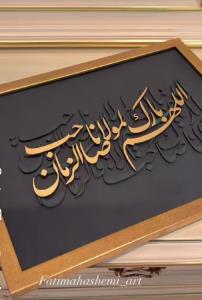 اللهم عجل لمولانا صاحب الزمان
Fatimahashemi_art